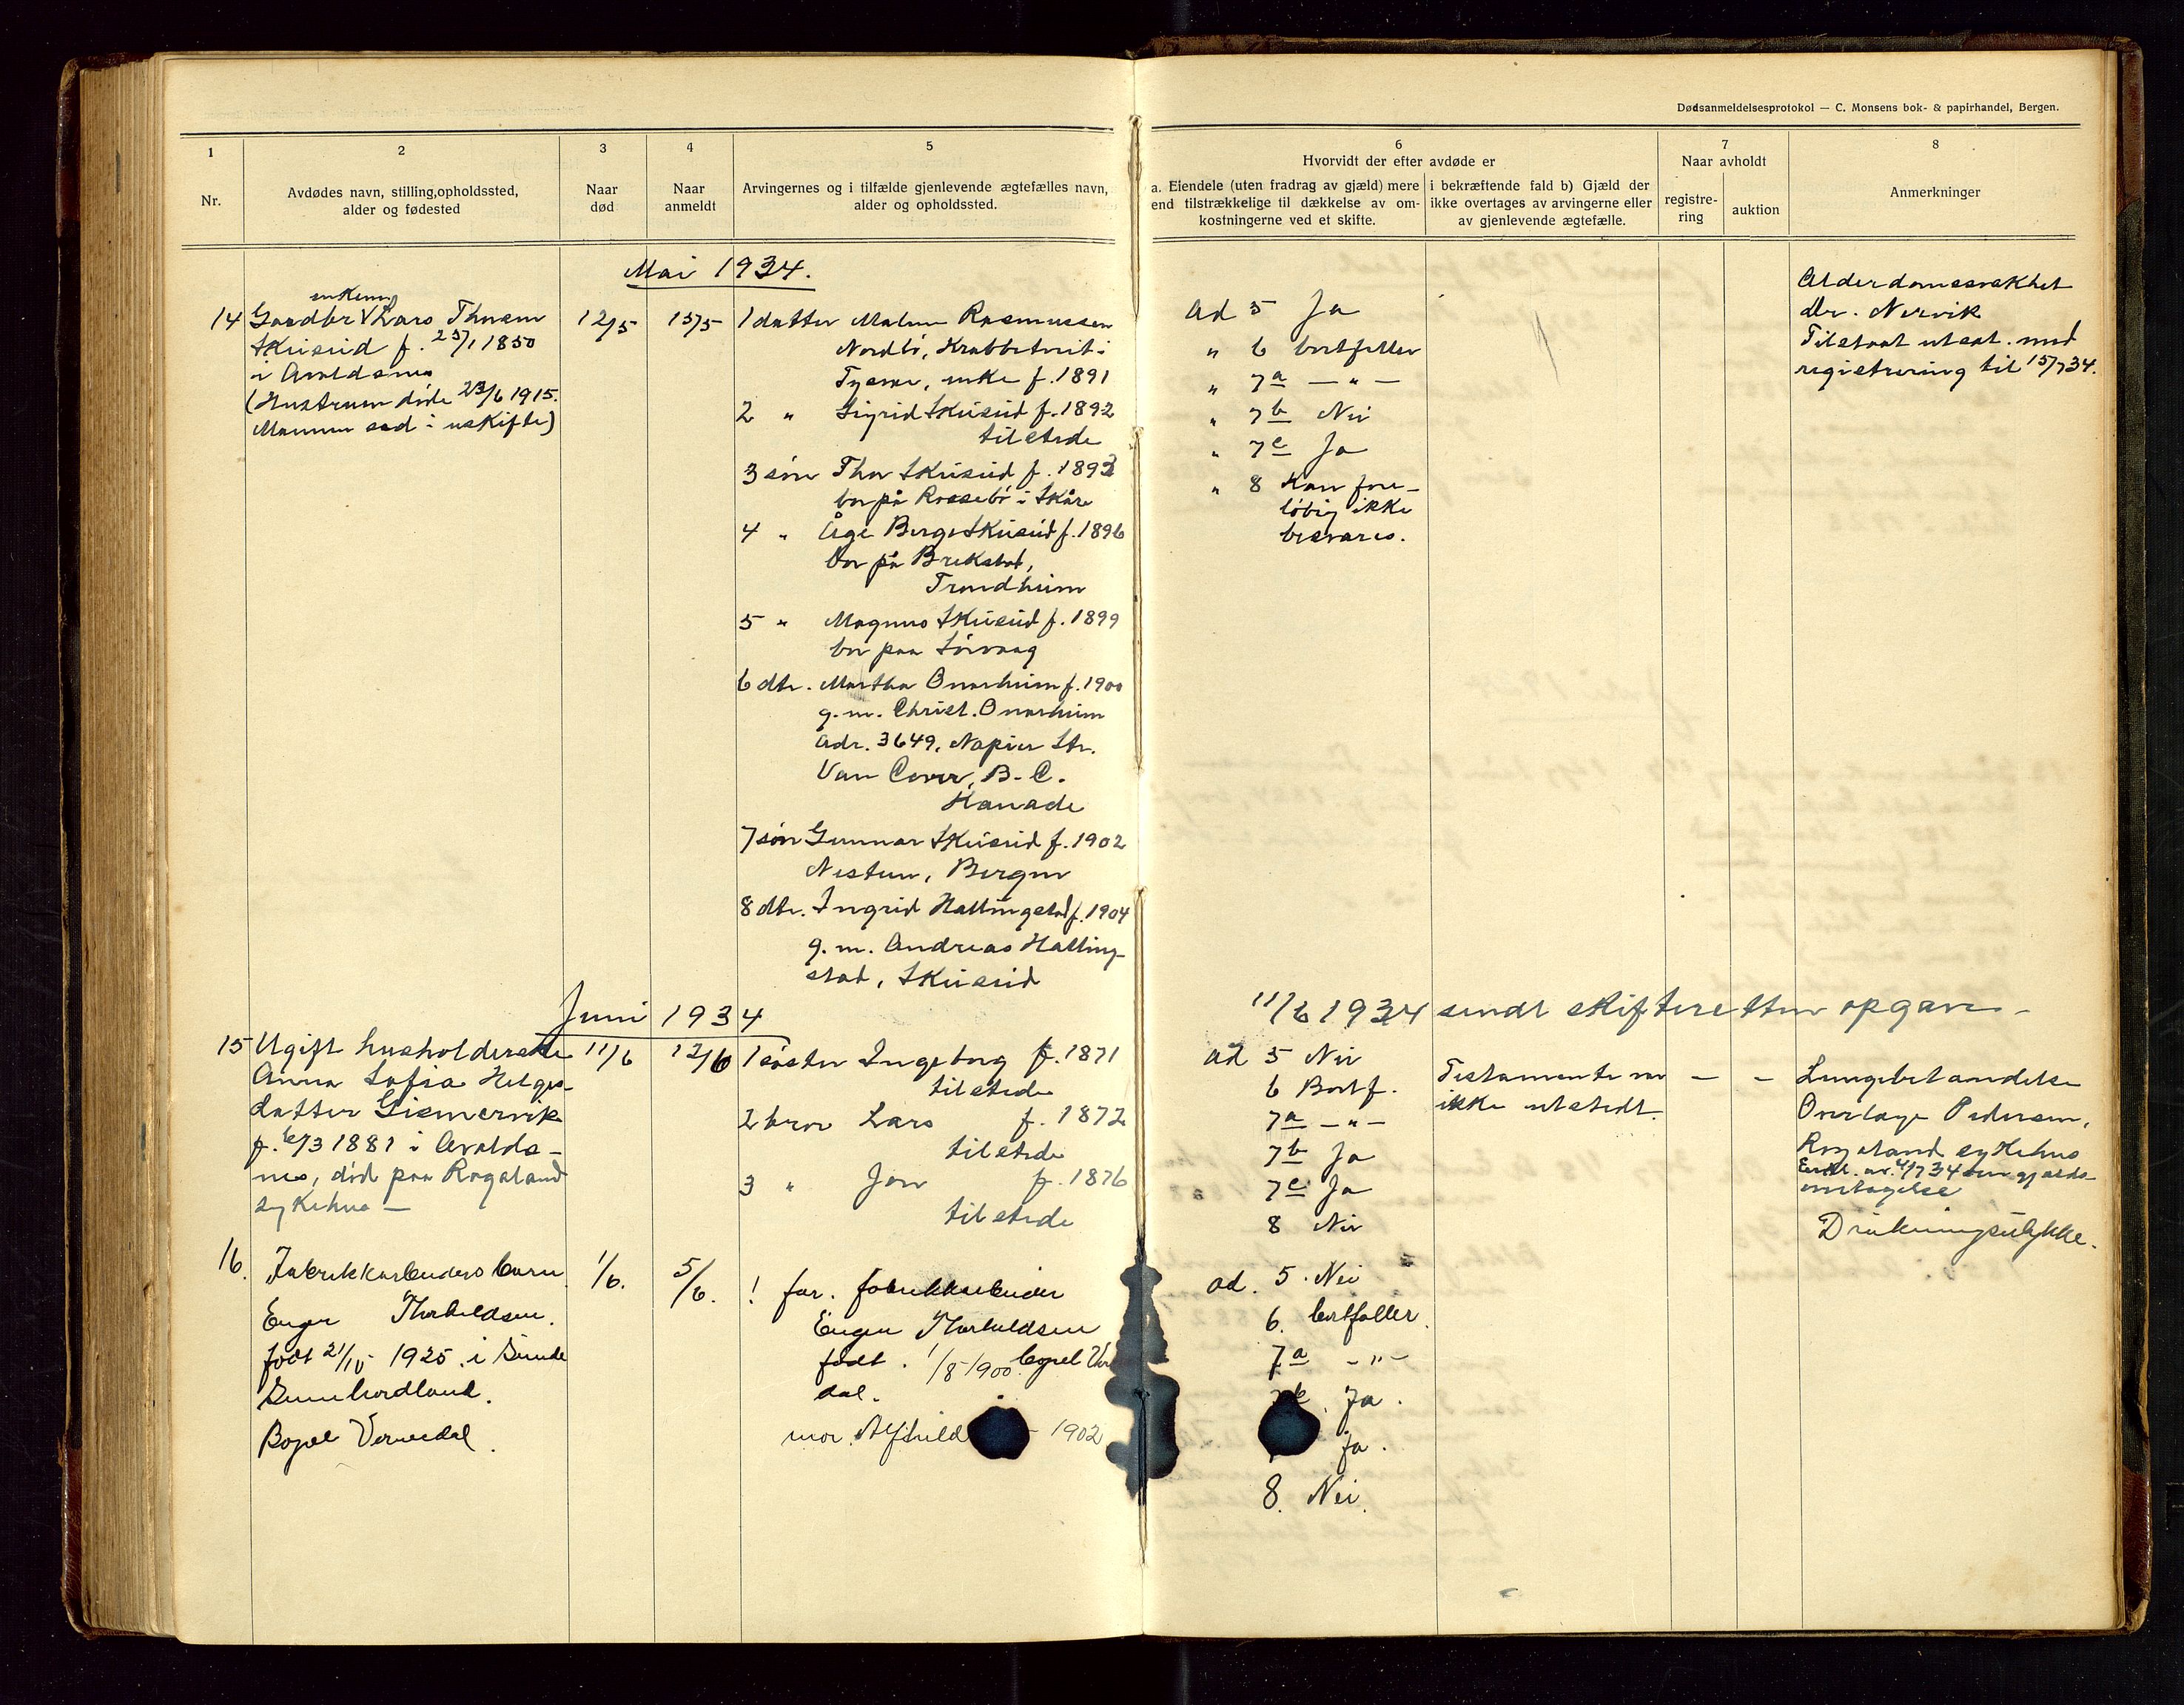 Dødsanmeldelsesprotokol — C. Monsens bok- & papirhandel, Bergen.
1
Nr.
2
Avdødes navn, stilling, opholdssted,
alder og fødested
3
Naar
død
4
Naar
anmeldt
5
Arvingernes og i tilfælde gjenlevende ægtefælles navn,
alder og opholdssted.
6
Hvorvidt der efter avdøde er
a. Eiendele (uten fradrag av gjæld) mere
end tilstrækkelige til dækkelse av om-
kostningerne ved et skifte.
i bekræftende fald b) Gjæld der
ikke overtages av arvingerne eller
av gjenlevende ægtefælle.
7
Naar avholdt
registre-
ring
auktion
8
Anmerkninger
Mai 1934.
enkem
14 Gaardbr Lars Thuesen
Skeiseid f. 25/1 1850
i Avaldsnes
(Hustruen døde 23/6 1915.
Mannen sad i uskifte)
12/5
15/5
1 datter Malene Rasmussen
Nordbö, Krabbetveit i
Tysvær, enke f. 1891
2 " Sigrid Skeiseid f. 1892
tilstede
3 sön Thor Skeiseid f. 1893
bor på Rossebö i Skåre
4 " Åge Berge Skeiseid f. 1896
bor på Brekstad,
Trondheim
5 " Magnus Skeiseid f. 1899
bor paa Sörvaag
6 dtr. Martha Onarheim f. 1900
g.m. Christ. Onarheim
Adr. 3649, Napier Str.
Van Cover, B.C.
Kanada
7 sön Gunnar Skeiseid f. 1902
Nestun, Bergen
8 dtr. Ingrid Hattingstad f. 1904
g.m. Andreas Hatting-
stad, Skeiseid
ad 5 Ja
" 6 bortfaller
" 7a — " —
" 7b Nei
" 7c Ja
" 8 Kan fore-
löbig ikke
besvares.
Alderdomssvakhet
dr. Nervik
Tilstaat utsat. med
registrering til 15/7 34.
Juni 1934
11/6 1934 sendt skifteretten opgave -
15 Ugift husholderske
Anna Sofia Helges-
datter Gismervik
f. 6/3 1881 i Avalds-
nes, död paa Rogaland
sykehus —
11/6
12/6
1 söster Ingeborg f. 1871
tilstede
2 bror Lars f. 1872
tilstede
3 " Jon f. 1876
tilstede
ad 5 Nei
6 Bortf.
7a — " —
7b Ja
7c Ja
8 Nei
Testamente var
ikke utstedt.
— —
Lungebetændelse
Overlæge Pedersen,
Rogaland sykehus
Erkl. av 4/7 34 om gjælds-
overtagelse
16. Fabrikkarbeiders barn
Eugen Thorkildsen.
født 21/10 1925 i Sunde
Sunnhordland.
Bopæl Vormedal.
1/6.
5/6.
1 far. fabrikkarbeider
Eugen Thorkildsen
født. 1/8-1900. bopel Vor
dal.
mor. Alfhild 1902
ad. 5. Nei
6. bortfaller.
7a - " -
Ja.
ja.
8. Nei.
Drukningsulykke.